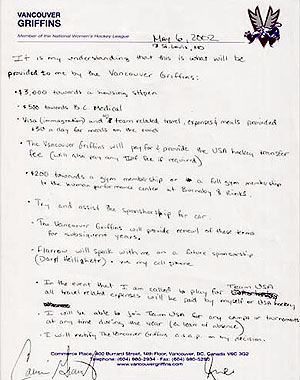 VANCOUVER
GRIFFINS
Member of the National Women's Hockey League
May 6, 2002
St. Louis, MO
It is my understanding that this is what will be
provided to me by the Vancouver Griffins:
· $3,000 towards a housing stipen
· $500 towards B.C. Medical
· Visa (immigration) and team related travel, expenses & meals provided
$30 a day for meals on the road
· The Vancouver Griffins will pay for & provide the USA hockey transfer
fee (will also pay any IIHF fee if required)
· $200 towards a gym membership or a full gym membership
to the women performance center at Burnaby 8 Rinks.
· Try and assist the sponsorship for car
· The Vancouver Griffins will provide renewal of these terms
for subsequent years.
will speak with me on a future sponsorship
my cell phone
· In the event that I am called to play for Team USA
all travel related expenses will be paid by myself or USA
hockey
· I will be able to join Team USA for any camps or tournaments
at any time during the year (a leave of absence)
· I will notify the Vancouver Griffins a.s.a.p. on my decision.
Commerce Place, 400 Burrard Street, 14th Floor, Vancouver, BC, Canada V6C 3G2
vancouvergriffins.com